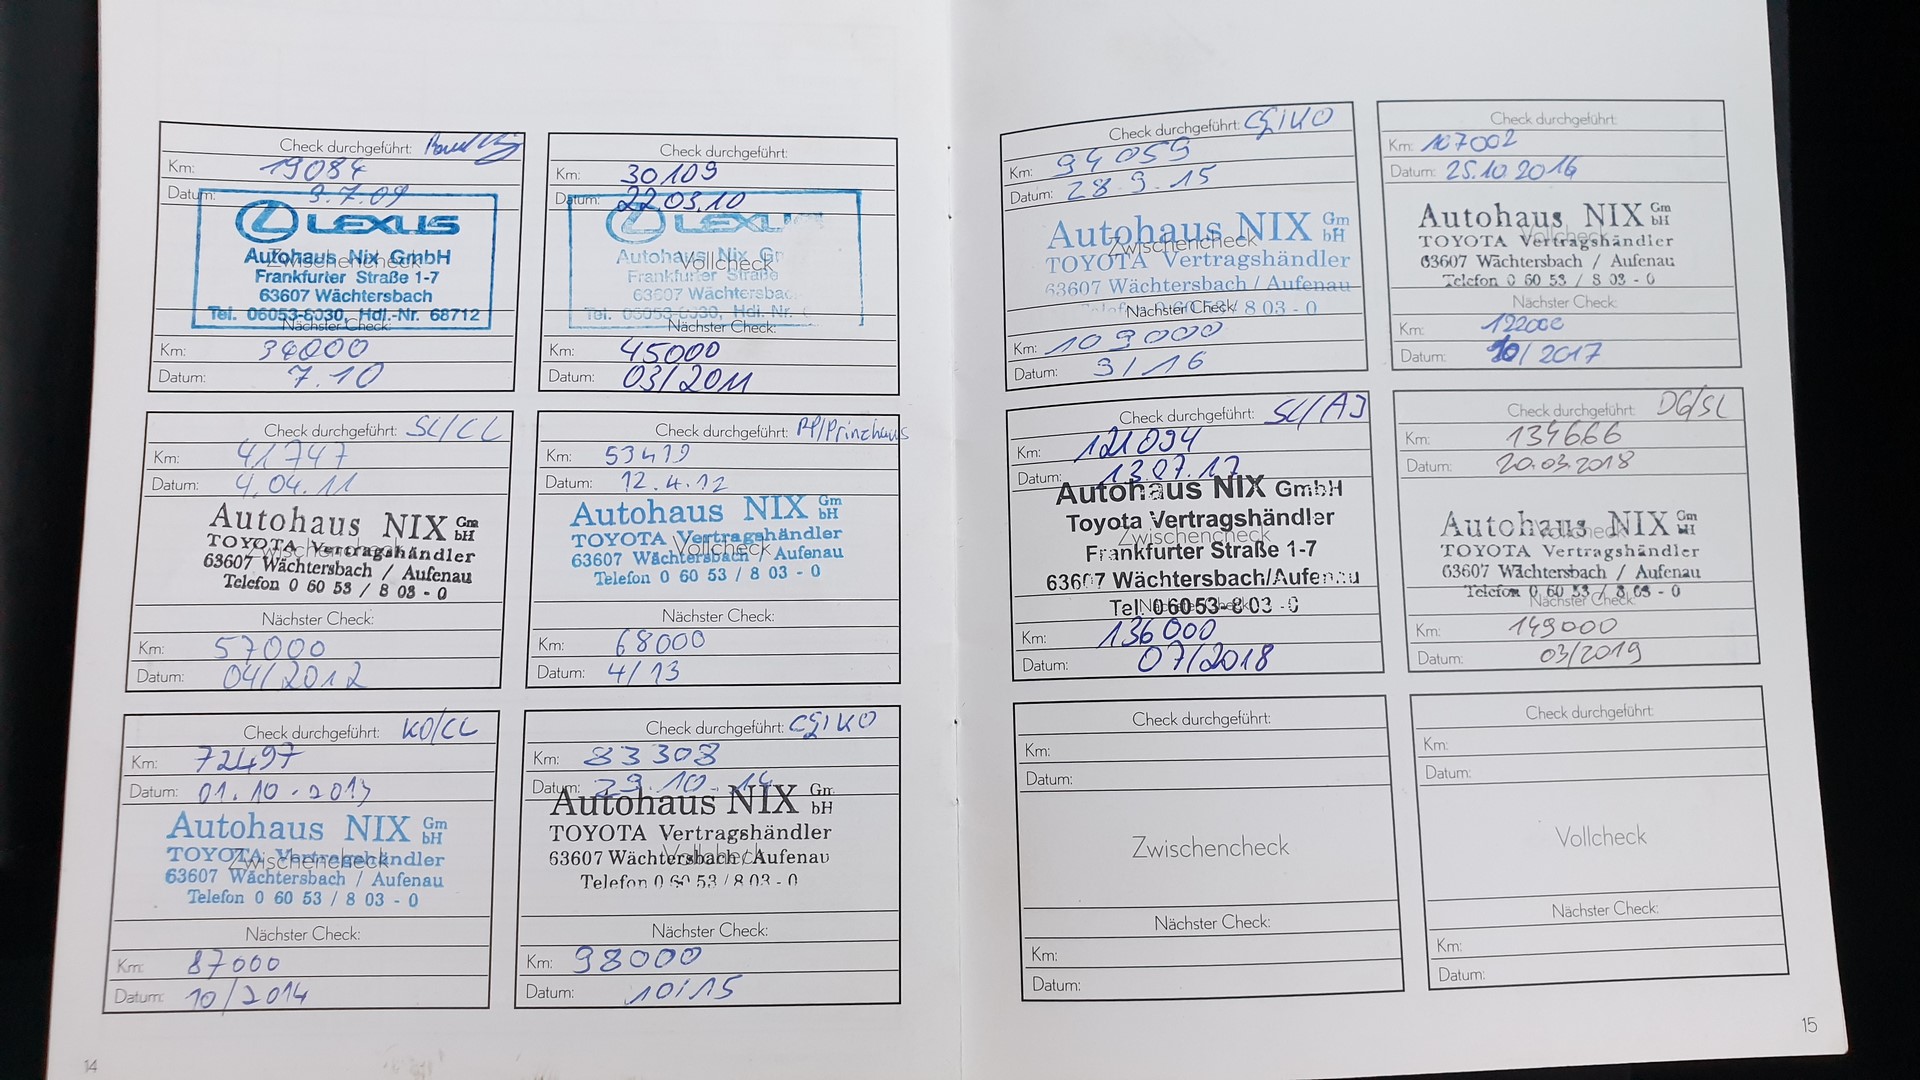 Check durchgeführt:
Km: 19084
Datum: 3.7.09
LEXUS
Autohaus Nix GmbH
Zwischencheck
Frankfurter Straße 1-7
63607 Wächtersbach
Tel. 06053-8030, Hdl.-Nr. 68712
Nächster Check:
Km: 34000
Datum: 7.10
Check durchgeführt:
Km: 30109
Datum: 22.03.10
LEXUS
Autohaus Nix
Vollcheck
Frankfurter Straße
63607 Wächtersbac
Tel. 06053-8030, Hdl. Nr.
Nächster Check:
Km: 45000
Datum: 03/2011
Check durchgeführt: SL/CL
Km: 41747
Datum: 4.04.11
Autohaus NIX GmbH
TOYOTA Vertragshändler
Zwischencheck
63607 Wächtersbach / Aufenau
Telefon 0 60 53 / 8 03 - 0
Nächster Check:
Km: 57000
Datum: 04/2012
Check durchgeführt: RP/Prinzhaus
Km: 53419
Datum: 12.4.12
Autohaus NIX GmbH
TOYOTA Vertragshändler
Vollcheck
63607 Wächtersbach / Aufenau
Telefon 0 60 53 / 8 03 - 0
Nächster Check:
Km: 68000
Datum: 4/13
Check durchgeführt: KO/CL
Km: 72497
Datum: 01.10.2013
Autohaus NIX GmbH
TOYOTA Vertragshändler
Zwischencheck
63607 Wächtersbach / Aufenau
Telefon 0 60 53 / 8 03 - 0
Nächster Check:
Km: 87000
Datum: 10/2014
Check durchgeführt:
Km: 83308
Datum: 29.10.14
Autohaus NIX GmbH
TOYOTA Vertragshändler
Vollcheck
63607 Wächtersbach / Aufenau
Telefon 0 60 53 / 8 03 - 0
Nächster Check:
Km: 98000
Datum: 10/15
14
Check durchgeführt:
Km: 94059
Datum: 28.9.15
Autohaus NIX GmbH
Zwischencheck
TOYOTA Vertragshändler
63607 Wächtersbach / Aufenau
Telefon 0 60 53 / 8 03 - 0
Nächster Check:
Km: 109000
Datum: 9/16
Check durchgeführt:
Km: 107002
Datum: 25.10.2016
Autohaus NIX GmbH
Vollcheck
TOYOTA Vertragshändler
63607 Wächtersbach / Aufenau
Telefon 0 60 53 / 8 03 - 0
Nächster Check:
Km: 122000
Datum: 10/2017
Check durchgeführt: SL/AJ
Km: 121094
Datum: 13.07.17
Autohaus NIX GmbH
Toyota Vertragshändler
Zwischencheck
Frankfurter Straße 1-7
63607 Wächtersbach/Aufenau
Tel. 06053-8 03 - 0
Nächster Check:
Km: 136000
Datum: 07/2018
Check durchgeführt: DG/SL
Km: 134666
Datum: 20.03.2018
Autohaus NIX GmbH
Vollcheck
TOYOTA Vertragshändler
63607 Wächtersbach / Aufenau
Telefon 0 60 53 / 8 03 - 0
Nächster Check:
Km: 149000
Datum: 03/2019
Check durchgeführt:
Km:
Datum:
Zwischencheck
Nächster Check:
Km:
Datum:
Check durchgeführt:
Km:
Datum:
Vollcheck
Nächster Check:
Km:
Datum:
15